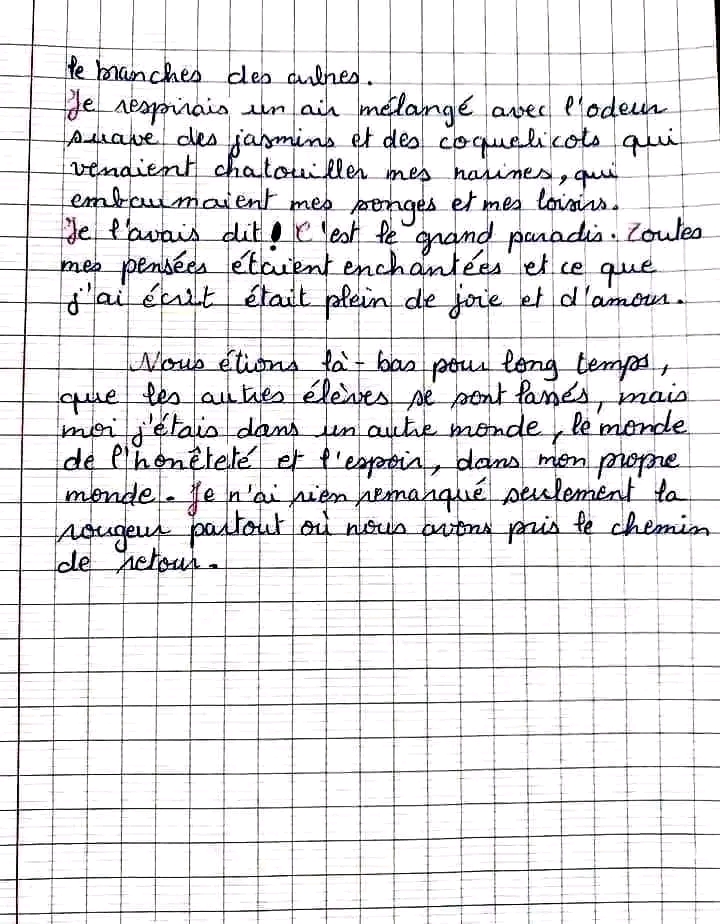 le branches des arbres.
Je respirais un air mélangé avec l'odeur
suave des jasmins et des coquelicots qui
venaient chatouiller mes narines, qui
embaumaient mes songes et mes loisirs.
Je l'avais dit! C'est le grand paradis. Toutes
mes pensées étaient enchantées et ce que
j'ai écrit était plein de joie et d'amour.
Nous étions là-bas pour long temps,
que les autres élèves se sont lassés, mais
moi j'étais dans un autre monde, le monde
de l'honêteté et l'espoir, dans mon propre
monde. Je n'ai rien remarqué seulement la
rougeur partout où nous avons pris le chemin
de retour.